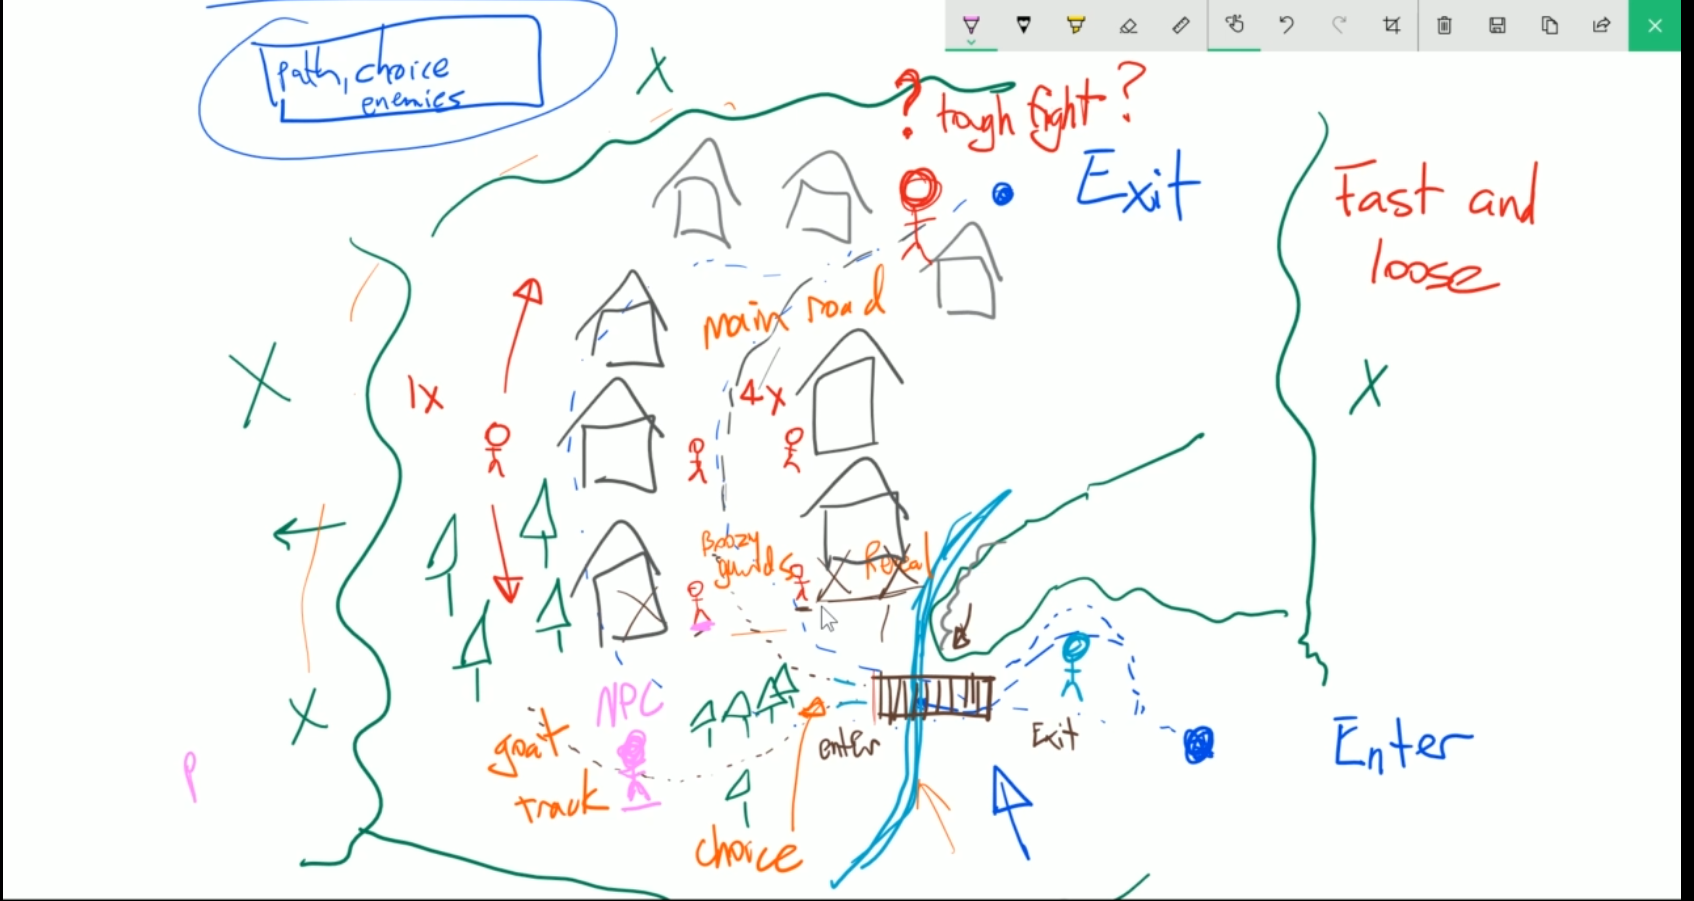 path, choice
enemies
X
?
tough fight?
Exit
Fast and
loose
main road
1x
4x
X
X
Boozy
guards
Reveal
NPC
X
goat
track
enter
Exit
Enter
P
choice